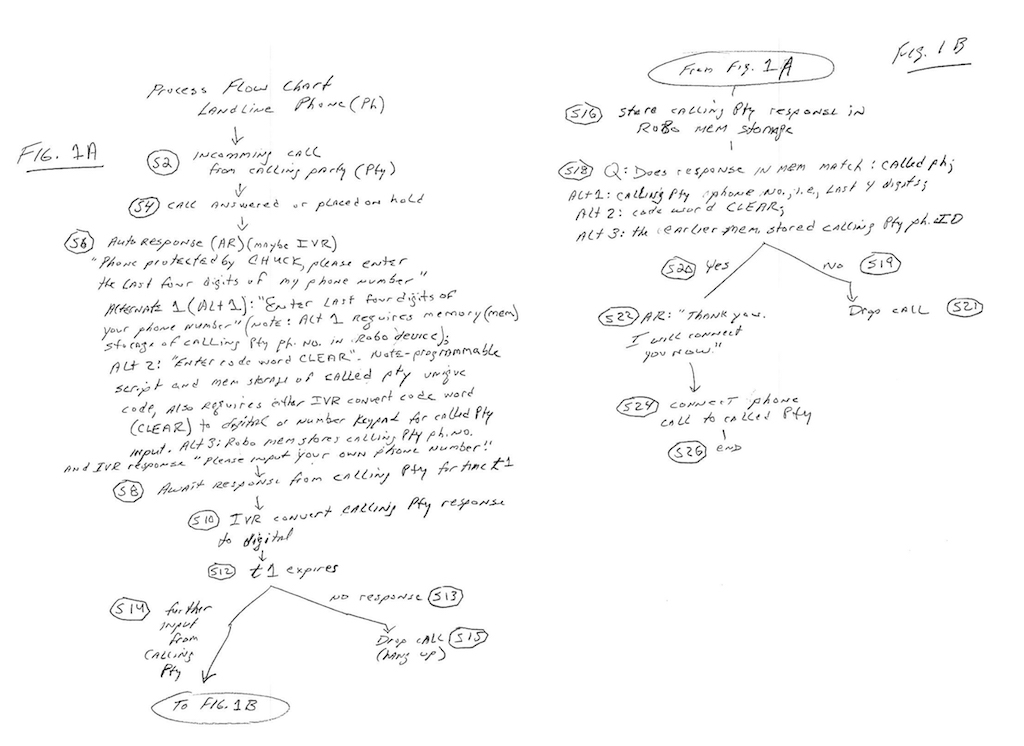 Process Flow Chart
Landline Phone (Ph)
FIG. 1A
S2 Incomming call
from calling party (Pty)
S4 Call answered or placed on hold
S6 Auto Response (AR) (maybe IVR)
"Phone protected by CHUCK, please enter
the last four digits of my phone number"
Alternate 1 (Alt 1): "Enter last four digits of
your phone number" (Note: Alt 1 requires memory (mem)
storage of calling Pty ph. no. in Robo device);
Alt 2: "Enter code word CLEAR". Note-programmable
script and mem storage of called pty unique
code, also requires either IVR convert code word
(CLEAR) to digital or number keypad for called Pty
input. Alt 3: Robo mem stores calling Pty ph. no.
and IVR response "Please input your own phone number!"
S8 Await response from calling Pty for time t1
S10 IVR convert calling Pty response
to digital
S12 t1 expires
No response S13
Drop call S15
(hang up)
S14 further
input
from
calling
Pty
To FIG. 1B
Fig. 1B
From Fig. 1A
S16 Store calling Pty response in
Robo mem storage
S18 Q: Does response in mem match: called ph;
Alt 1: calling Pty phone no., i.e., last 4 digits;
Alt 2: code word CLEAR;
Alt 3: the earlier mem. stored calling Pty ph. ID
S20 Yes
No S19
Drop call S21
S22 AR: "Thank you.
I will connect
you now."
S24 Connect phone
call to called Pty
S26 end